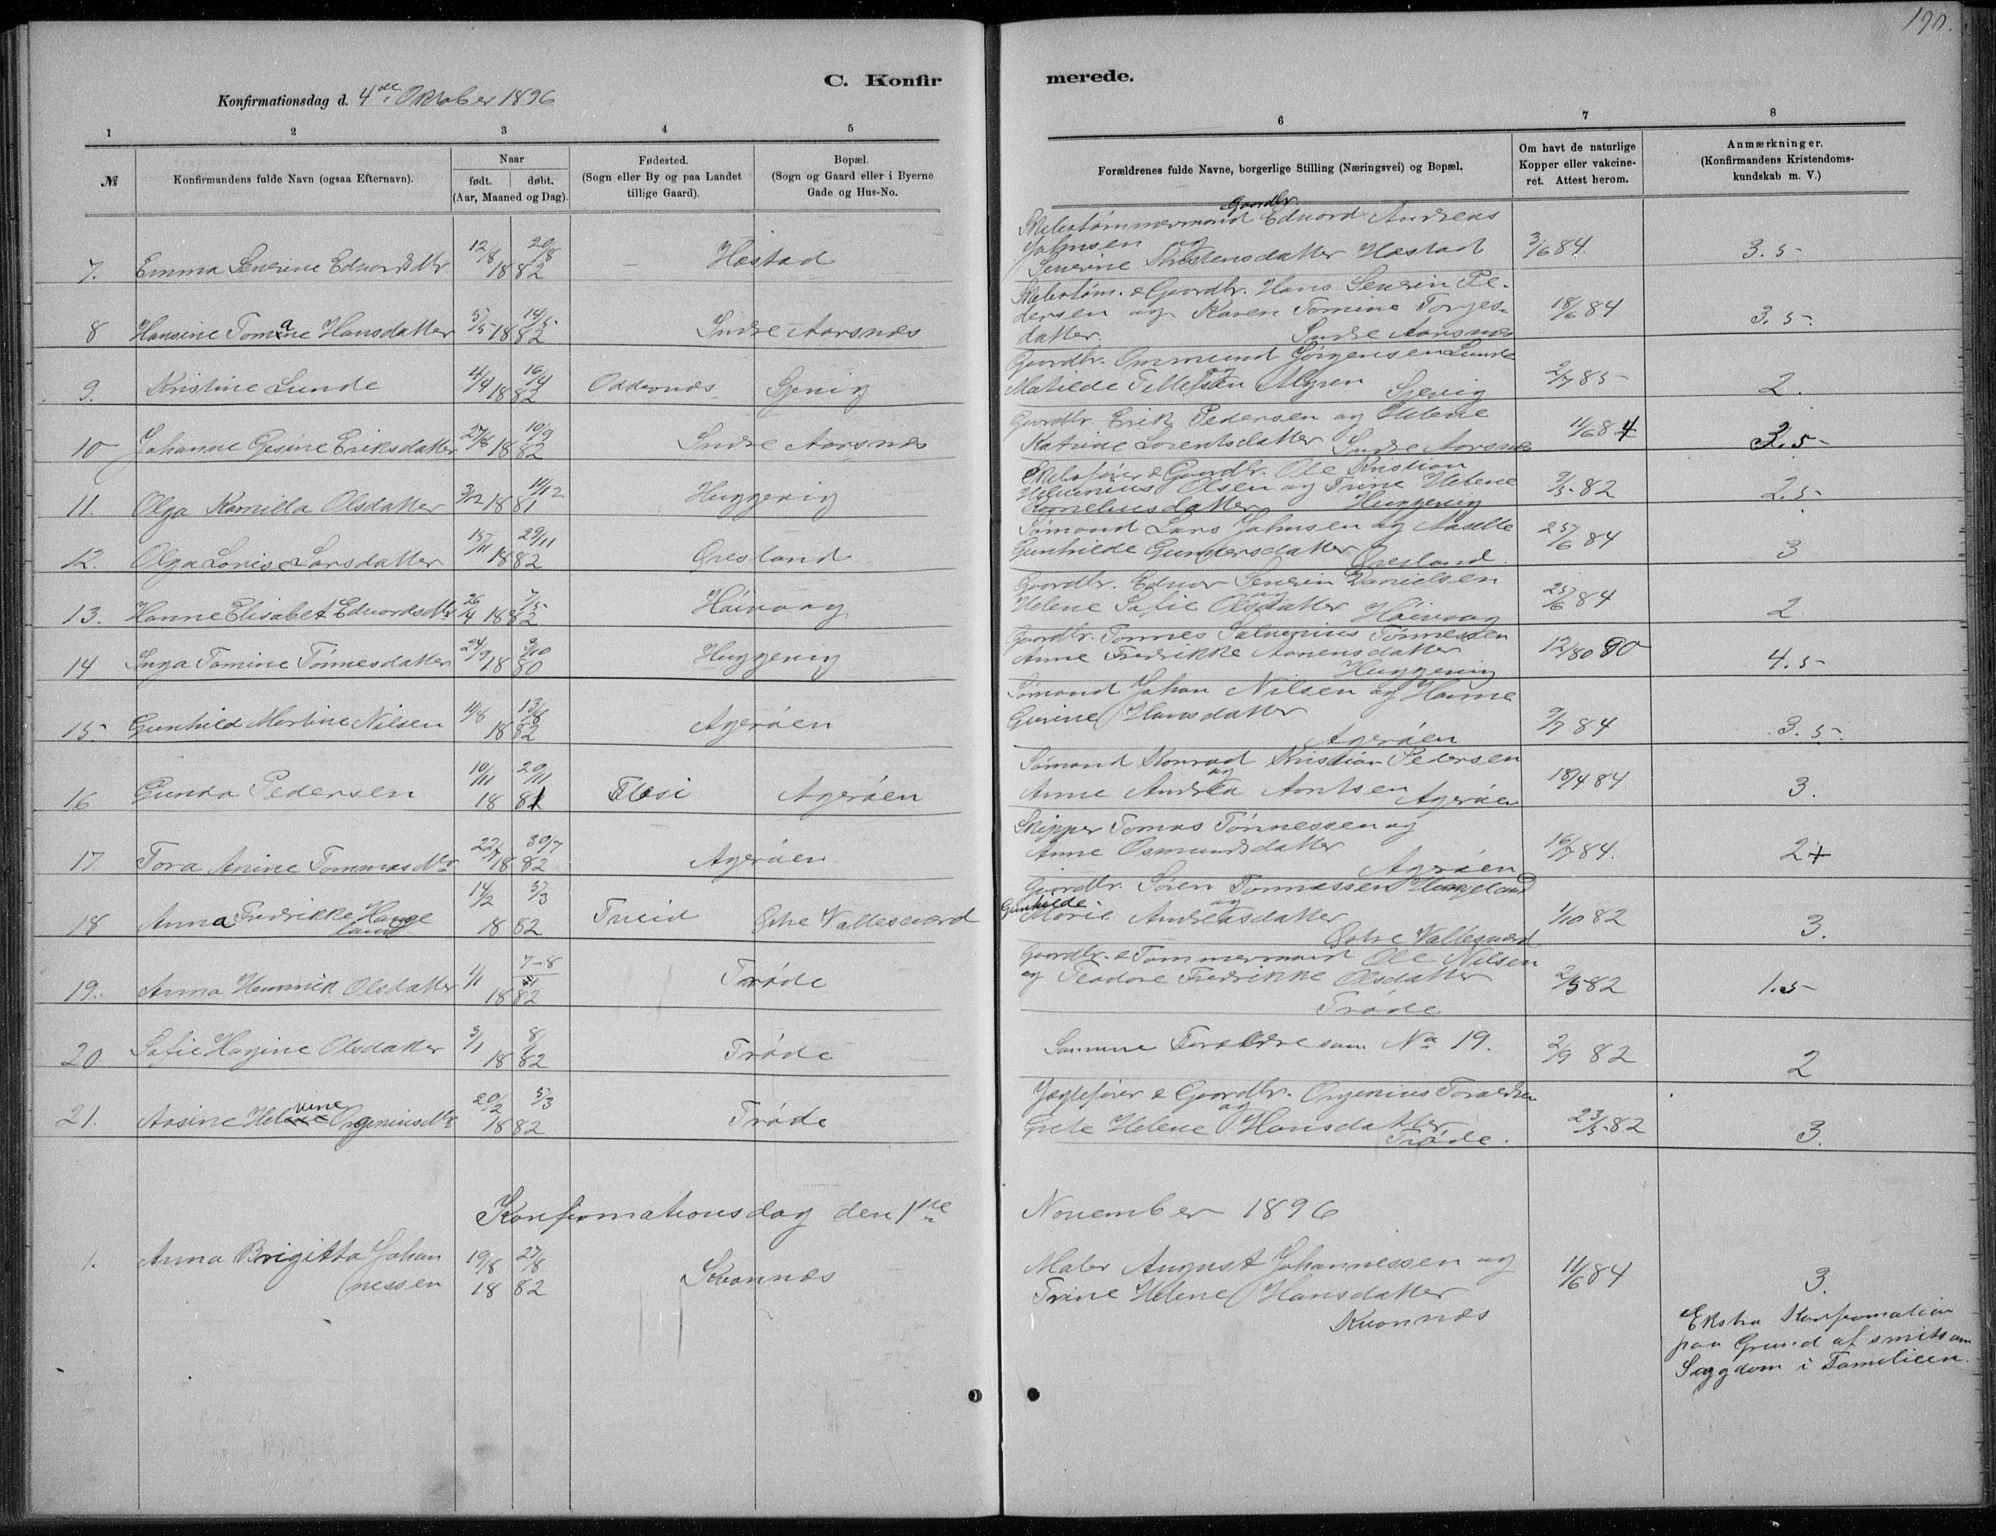 190.
C. Konfir
merede.
Konfirmationsdag d. 4de Oktober 1896
1 2 3 4 5 6 7 8
№
Konfirmandens fulde Navn (ogsaa Efternavn).
Naar
født. døbt.
(Aar, Maaned og Dag).
Fødested.
(Sogn eller By og paa Landet
tillige Gaard).
Bopæl.
(Sogn og Gaard eller i Byerne
Gade og Hus-No.
Forældrenes fulde Navne, borgerlige Stilling (Næringsvei) og Bopæl.
Om havt de naturlige
Kopper eller vakcine-
ret. Attest herom.
Anmærkninger.
(Konfirmandens Kristendoms-
kundskab m. V.)
Gaardbr.
Skibstømmermand Eduard Andreas
Johnsen og
7. Emma Severine Eduardsdtr 12/8 20/8 1882 Hæstad Severine Hæstad 3/6 84. 3.5
Skibstøm. & Gaardbr. Hans Severin Pe-
8 Hansine Tomine a Hansdatter 5/5 14/5 1882 Indre Aarsnæs dersen og Karen Tomine Torges- 18/6 84 3.5
datter. Indre Aarsnæs
Gaardbr. Ommund Jørgensen Lunde
9. Kristine Lunde 4/4 16/4 1882 Oddernæs Sjevig Matilde og Sjevig 2/7 85 2.
Gaardbr. Erik Pedersen og Helene
10 Johanne Gesine Eriksdatter 27/8 10/9 1882 Indre Aarsnæs Katrine Lorentsdatter Indre Aarsnæs 11/6 84 3.5
Skibsfører & Gaardbr. Ole Kristian
11. Olga Kamilla Olsdatter 3/12 11/12 1881 Huggevig Helvenius Olsen og Trine Helene 9/5 82 2.5
Kornelius datter Huggevig
Sømand Lars Johnsen og Aaselle
12. Olga Lovise Larsdatter 15/11 29/11 1882 Øresland Gunhilde Gundersdatter Øresland. 25/6 84 3
Gaardbr. Edvar Severin Danielsen
13. Hanne Elisabet Eduardsdtr 26/4 7/5 1882 Høivaag Helene Sofie og Olsdatter Høivaag 25/6 84 2.
Gaardbr. Tønnes Salvenius Tønnessen
14 Inga Tomine Tønnesdatter 24/9 3/10 1880 Huggevig Anne Fredrikke Aanensdatter 12/80 90 4.5
Huggevig
Sømand Johan Nilsen og Hanne
15 Gunhild Martine Nilsen 11/8 13/8 1882 Agerøen Gurine Hansdatter Agerøen 9/7 84 3.5
Sømand Konrad Kristian Pedersen
16 Gunda Pedersen 10/11 20/11 1881 Flosi Agerøen Anne Andrea og Arntsen Agerøen 18/4 84 3.
Skipper Tomas Tønnessen og
17. Tora Anine Tommasdtr 22/7 30/7 1882 Agerøen Anne Osmundsdatter Agerøen 16/7 84. 2+
Gaardbr. Søren Tønnessen Haugeland
18 Anna Fredrikke Hauge 14/2 5/3 1882 Treid Østre Vallesværd Gunhilde Marie og Andreasdatter 1/10 82 3.
land Østre Vallesværd
Gaardbr. & Tømmermand Ole Nilsen
19. Anna Henrik Olsdatter 1/1 7-8/1 1882 Trøde og Teodore Fredrikke Olsdatter 2/9 82 1.5
Trøde
20 Sofie Hagine Olsdatter 3/1 8/1 1882 Trøde Samme Forældre som No 19. 2/9 82 2
Jægtefører & Gaardbr. Orgenius
21. Aasine Helvine Orgeniusdtr 20/2 5/3 1882 Trøde Grete Helene og Hansdatter Trøde. 23/5 82 3.
Konfirmationsdag den 1ste November 1896
1. Anna Brigitta Johan 19/8 27/8 Kvannæs Maler August Johannessen og 11/6 84 3.
nessen 1882 Trine Helene Hansdatter
Kvannæs
Ekstra Konfirmation
paa Grund af smitsom
Sygdom i Familieen.